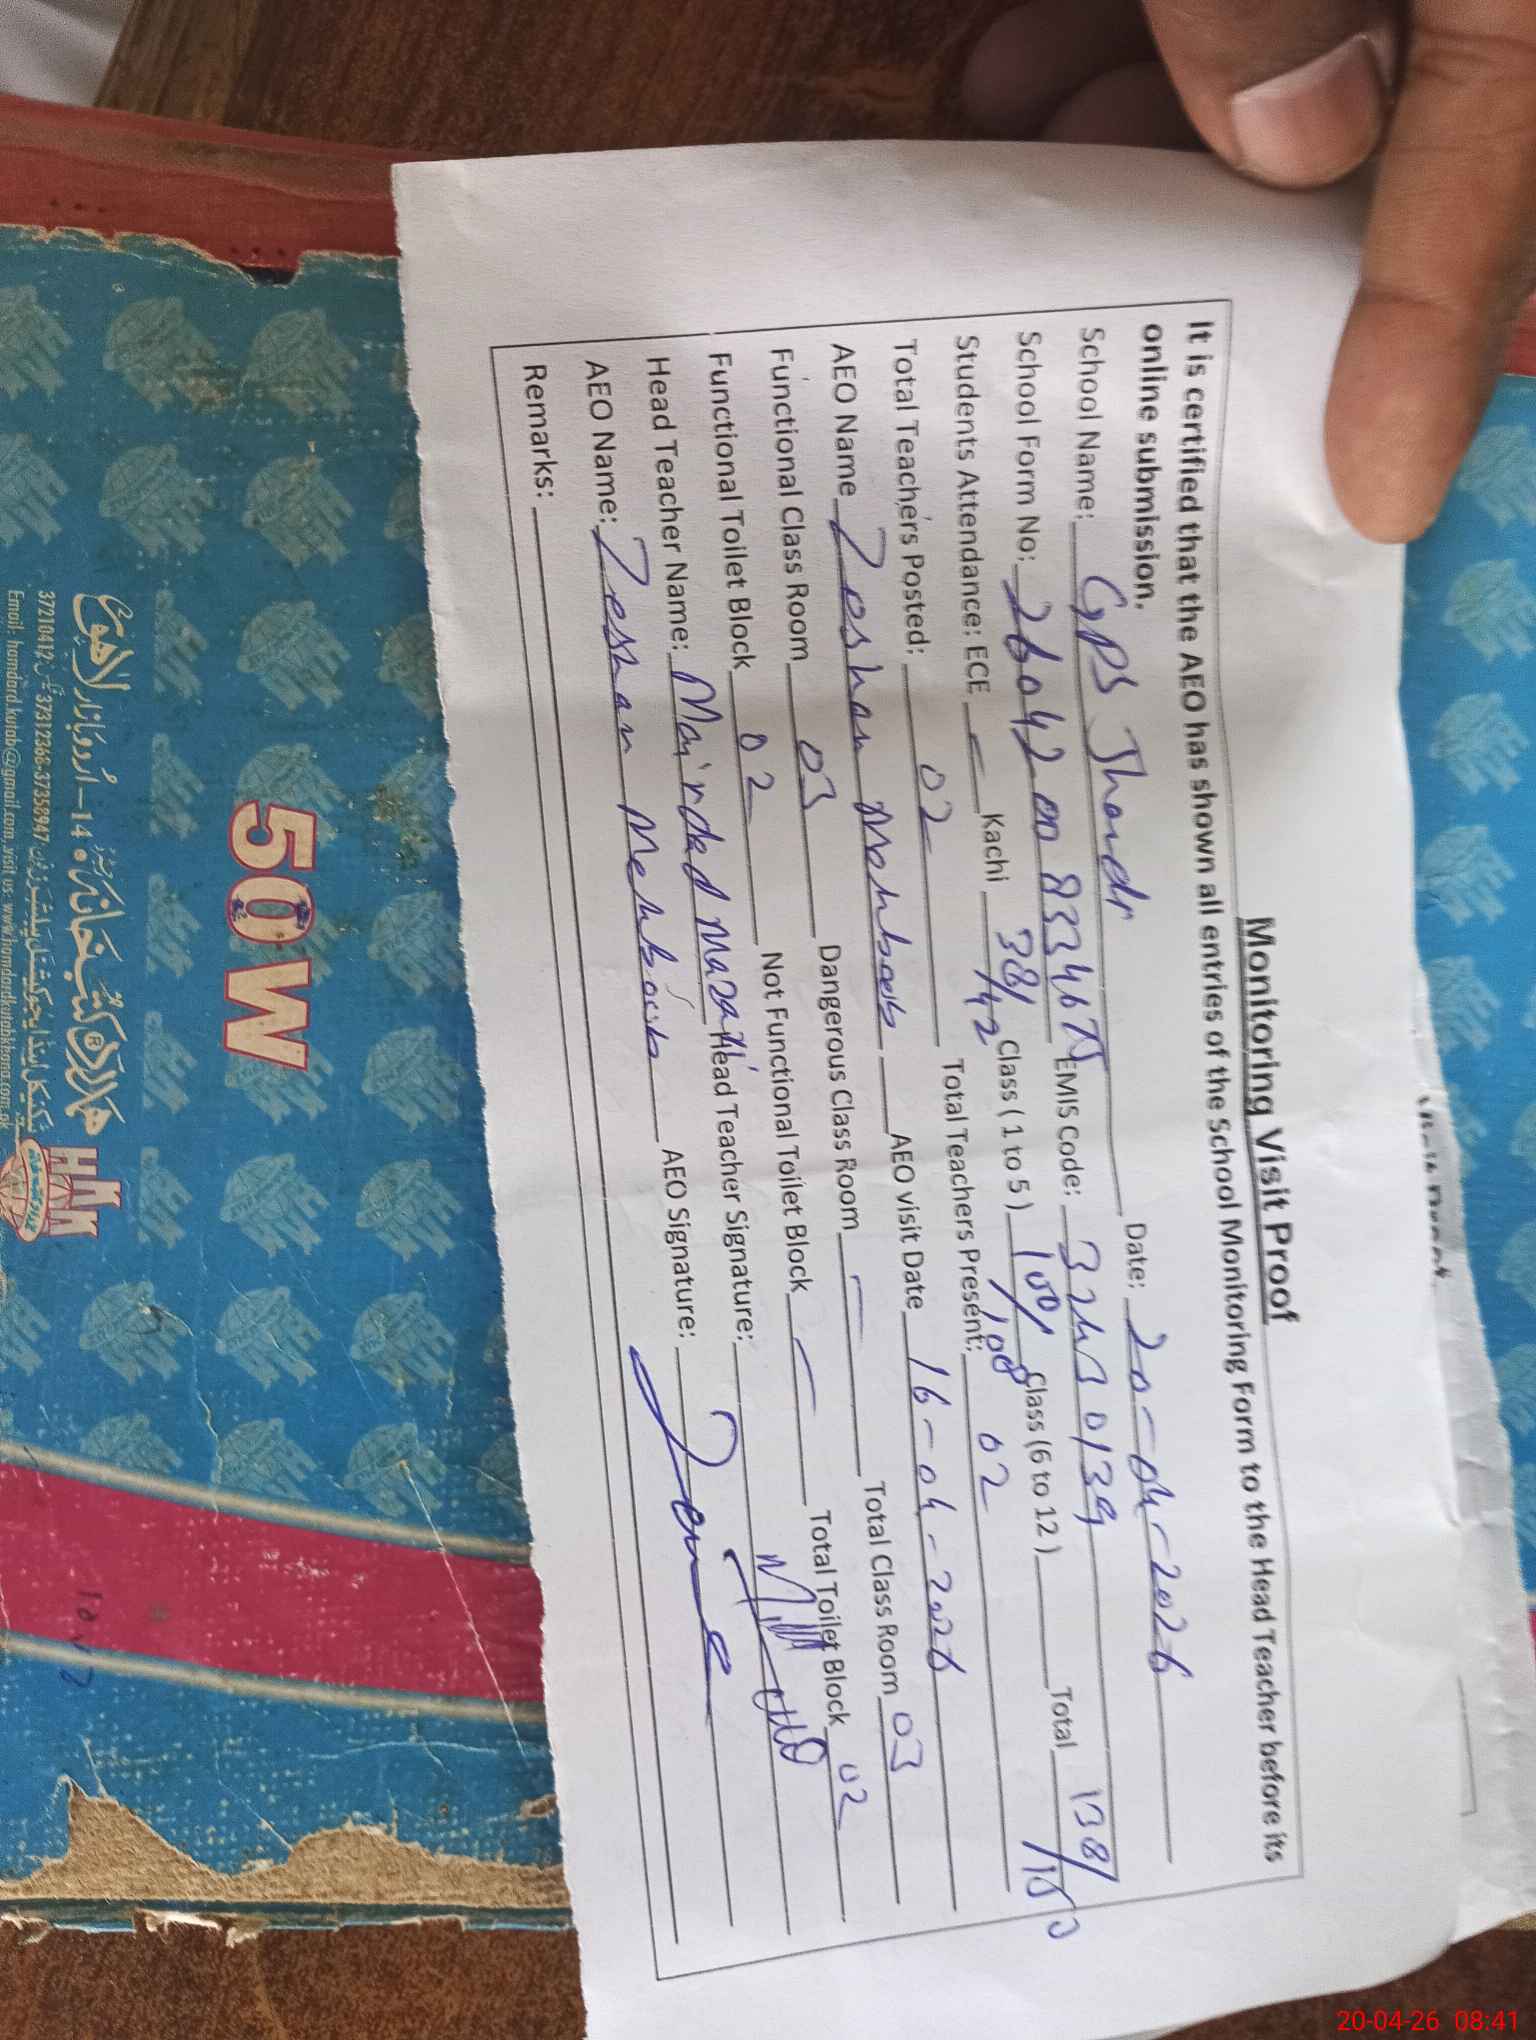 Monitoring Visit Proof
It is certified that the AEO has shown all entries of the School Monitoring Form to the Head Teacher before its
online submission.
School Name: GPS Jhandi Date: 20-04-2026
School Form No: EMIS Code: 32430139
Students Attendance: ECE — Kachi 38/42 Class ( 1 to 5 ) 100/108 Class (6 to 12 ) Total 138/150
Total Teachers Posted: 02 Total Teachers Present: 02
AEO Name Zeshan Mehboob AEO visit Date 16-04-2026
Functional Class Room 03 Dangerous Class Room — Total Class Room 03
Functional Toilet Block 02 Not Functional Toilet Block — Total Toilet Block 02
Head Teacher Name: Head Teacher Signature:
AEO Name: Zeshan Mehboob AEO Signature:
Remarks:
50W
HKK
37210412 37312368-37358947
Email: hamdard.kutab@gmail.com visit us: www.hamdardkutabkhana.com.pk
20-04-26 08:41